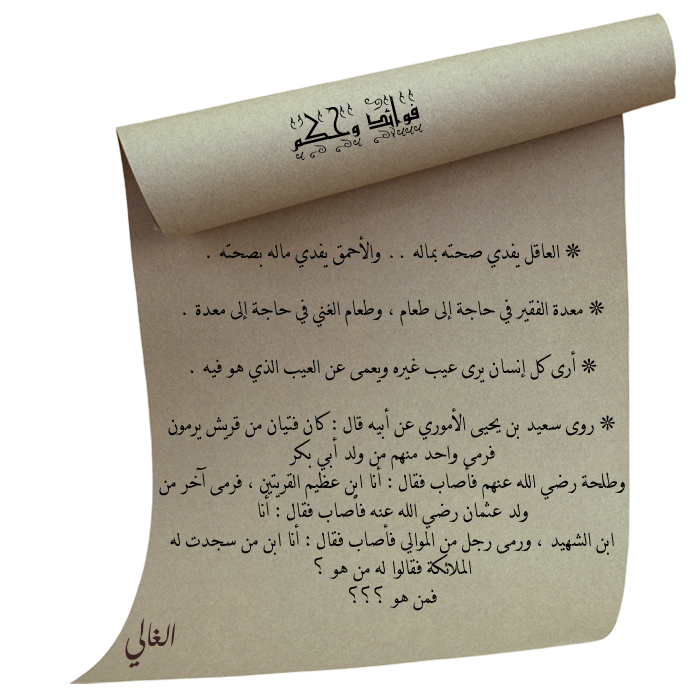 فوائد وحكم
❊ العاقل يفدي صحته بماله . . والأحمق يفدي ماله بصحته .
❊ معدة الفقير في حاجة إلى طعام ، وطعام الغني في حاجة إلى معدة .
❊ أرى كل إنسان يرى عيب غيره ويعمى عن العيب الذي هو فيه .
❊ روى سعيد بن يحيى الأموري عن أبيه قال : كان فتيان من قريش يرمون
فرمي واحد منهم من ولد أبي بكر
وطلحة رضي الله عنهم فأصاب فقال : أنا ابن عظيم القريتين ، فرمى آخر من
ولد عثمان رضي الله عنه فأصاب فقال : أنا
ابن الشهيد ، ورمى رجل من الموالي فأصاب فقال : أنا ابن من سجدت له
الملائكة فقالوا له من هو ؟
فمن هو ؟؟؟
الغالي